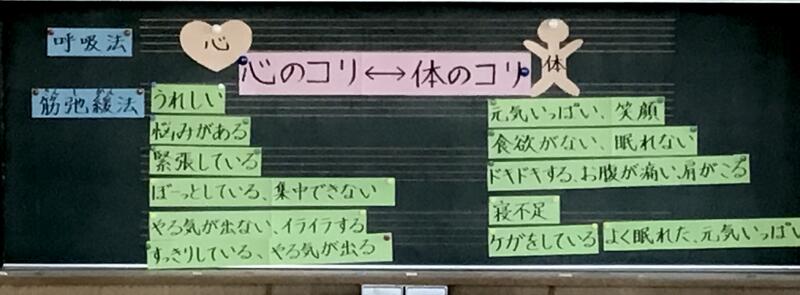 呼吸法
心
体
心のコリ↔体のコリ
筋弛緩法
きん し かん
うれしい
悩みがある
緊張している
ぼーっとしている、集中できない
やる気が出ない、イライラする
すっきりしている、やる気が出る
元気いっぱい、笑顔
食欲がない、眠れない
ドキドキする、お腹が痛い、肩がこる
寝不足
ケガをしている
よく眠れた、元気いっぱい